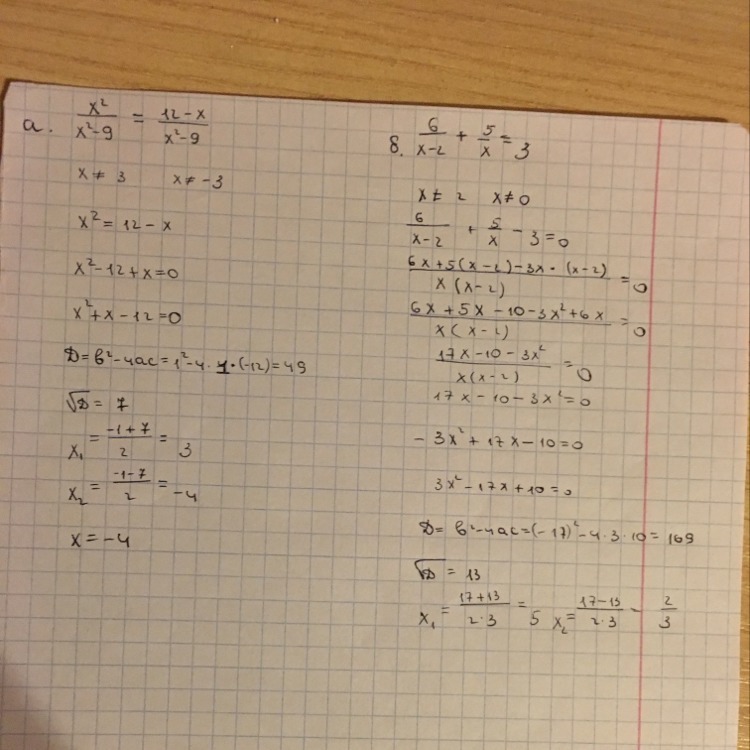 а. x²/(x²-9) = (12-x)/(x²-9)
x ≠ 3 x ≠ -3
x² = 12 - x
x² - 12 + x = 0
x² + x - 12 = 0
D = в² - 4ac = 1² - 4 · 1 · (-12) = 49
√D = 7
x₁ = (-1+7)/2 = 3
x₂ = (-1-7)/2 = -4
x = -4
б. 6/(x-2) + 5/x = 3
x ≠ 2 x ≠ 0
6/(x-2) + 5/x - 3 = 0
(6x + 5(x-2) - 3x · (x-2))/(x(x-2)) = 0
(6x + 5x - 10 - 3x² + 6x)/(x(x-2)) = 0
(17x - 10 - 3x²)/(x(x-2)) = 0
17x - 10 - 3x² = 0
- 3x² + 17x - 10 = 0
3x² - 17x + 10 = 0
D = в² - 4ac = (-17)² - 4 · 3 · 10 = 169
√D = 13
x₁ = (17+13)/(2·3) = 5 x₂ = (17-13)/(2·3) - 2/3